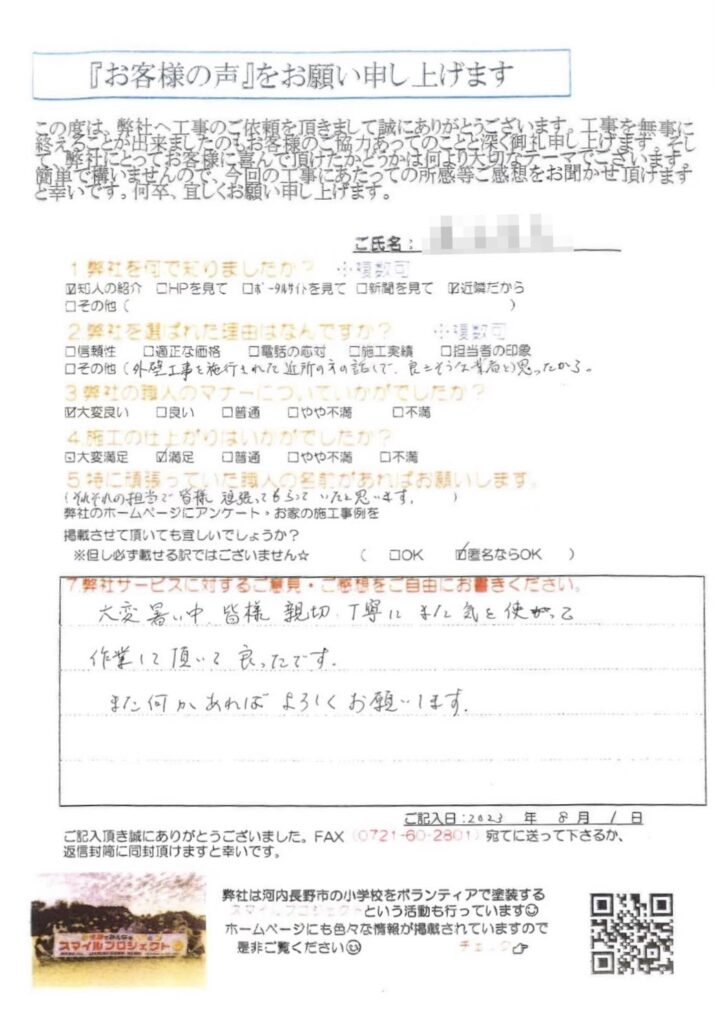 『お客様の声』をお願い申し上げます
この度は、弊社へ工事のご依頼を頂きまして誠にありがとうございます。工事を無事に
終えることが出来ましたのもお客様のご協力あってのことと深く御礼申し上げます。そし
て、弊社にとってお客様に喜んで頂けたかどうかは何より大切なテーマでございます。
簡単で構いませんので、今回の工事にあたっての所感等ご感想をお聞かせ頂けます
と幸いです。何卒、宜しくお願い申し上げます。
ご氏名:
1.弊社を何で知りましたか? ※複数可
☑知人の紹介 □HPを見て □ポータルサイトを見て □新聞を見て ☑近隣だから
□その他( )
2.弊社を選ばれた理由はなんですか? ※複数可
□信頼性 □適正な価格 □電話の応対 □施工実績 □担当者の印象
□その他(外壁工事を施行された近所の方の話しで、良さそうな業者と思ったから。
3.弊社の職人のマナーについていかがでしたか?
☑大変良い □良い □普通 □やや不満 □不満
4.施工の仕上がりはいかがでしたか?
□大変満足 ☑満足 □普通 □やや不満 □不満
5.特に頑張っていた職人の名前があればお願いします。
(それぞれの担当で皆様 頑張ってもらっていたと思います。 )
弊社のホームページにアンケート・お家の施工事例を
掲載させて頂いても宜しいでしょうか?
※但し必ず載せる訳ではございません☆ ( □OK ☑匿名ならOK )
7.弊社サービスに対するご意見・ご感想をご自由にお書きください。
大変暑い中、皆様 親切、丁寧に また気を使がって
作業して頂いて良ったです。
また何かあれば よろしくお願いします。
ご記入日:2023 年 8月 1日
ご記入頂き誠にありがとうございました。FAX(0721-60-2801)宛てに送って下さるか、
返信封筒に同封頂けますと幸いです。
弊社は河内長野市の小学校をボランティアで塗装する
スマイルプロジェクトという活動も行っています☺
ホームページにも色々な情報が掲載されていますので
是非ご覧ください☺ チェック☞
スマイルプロジェクト